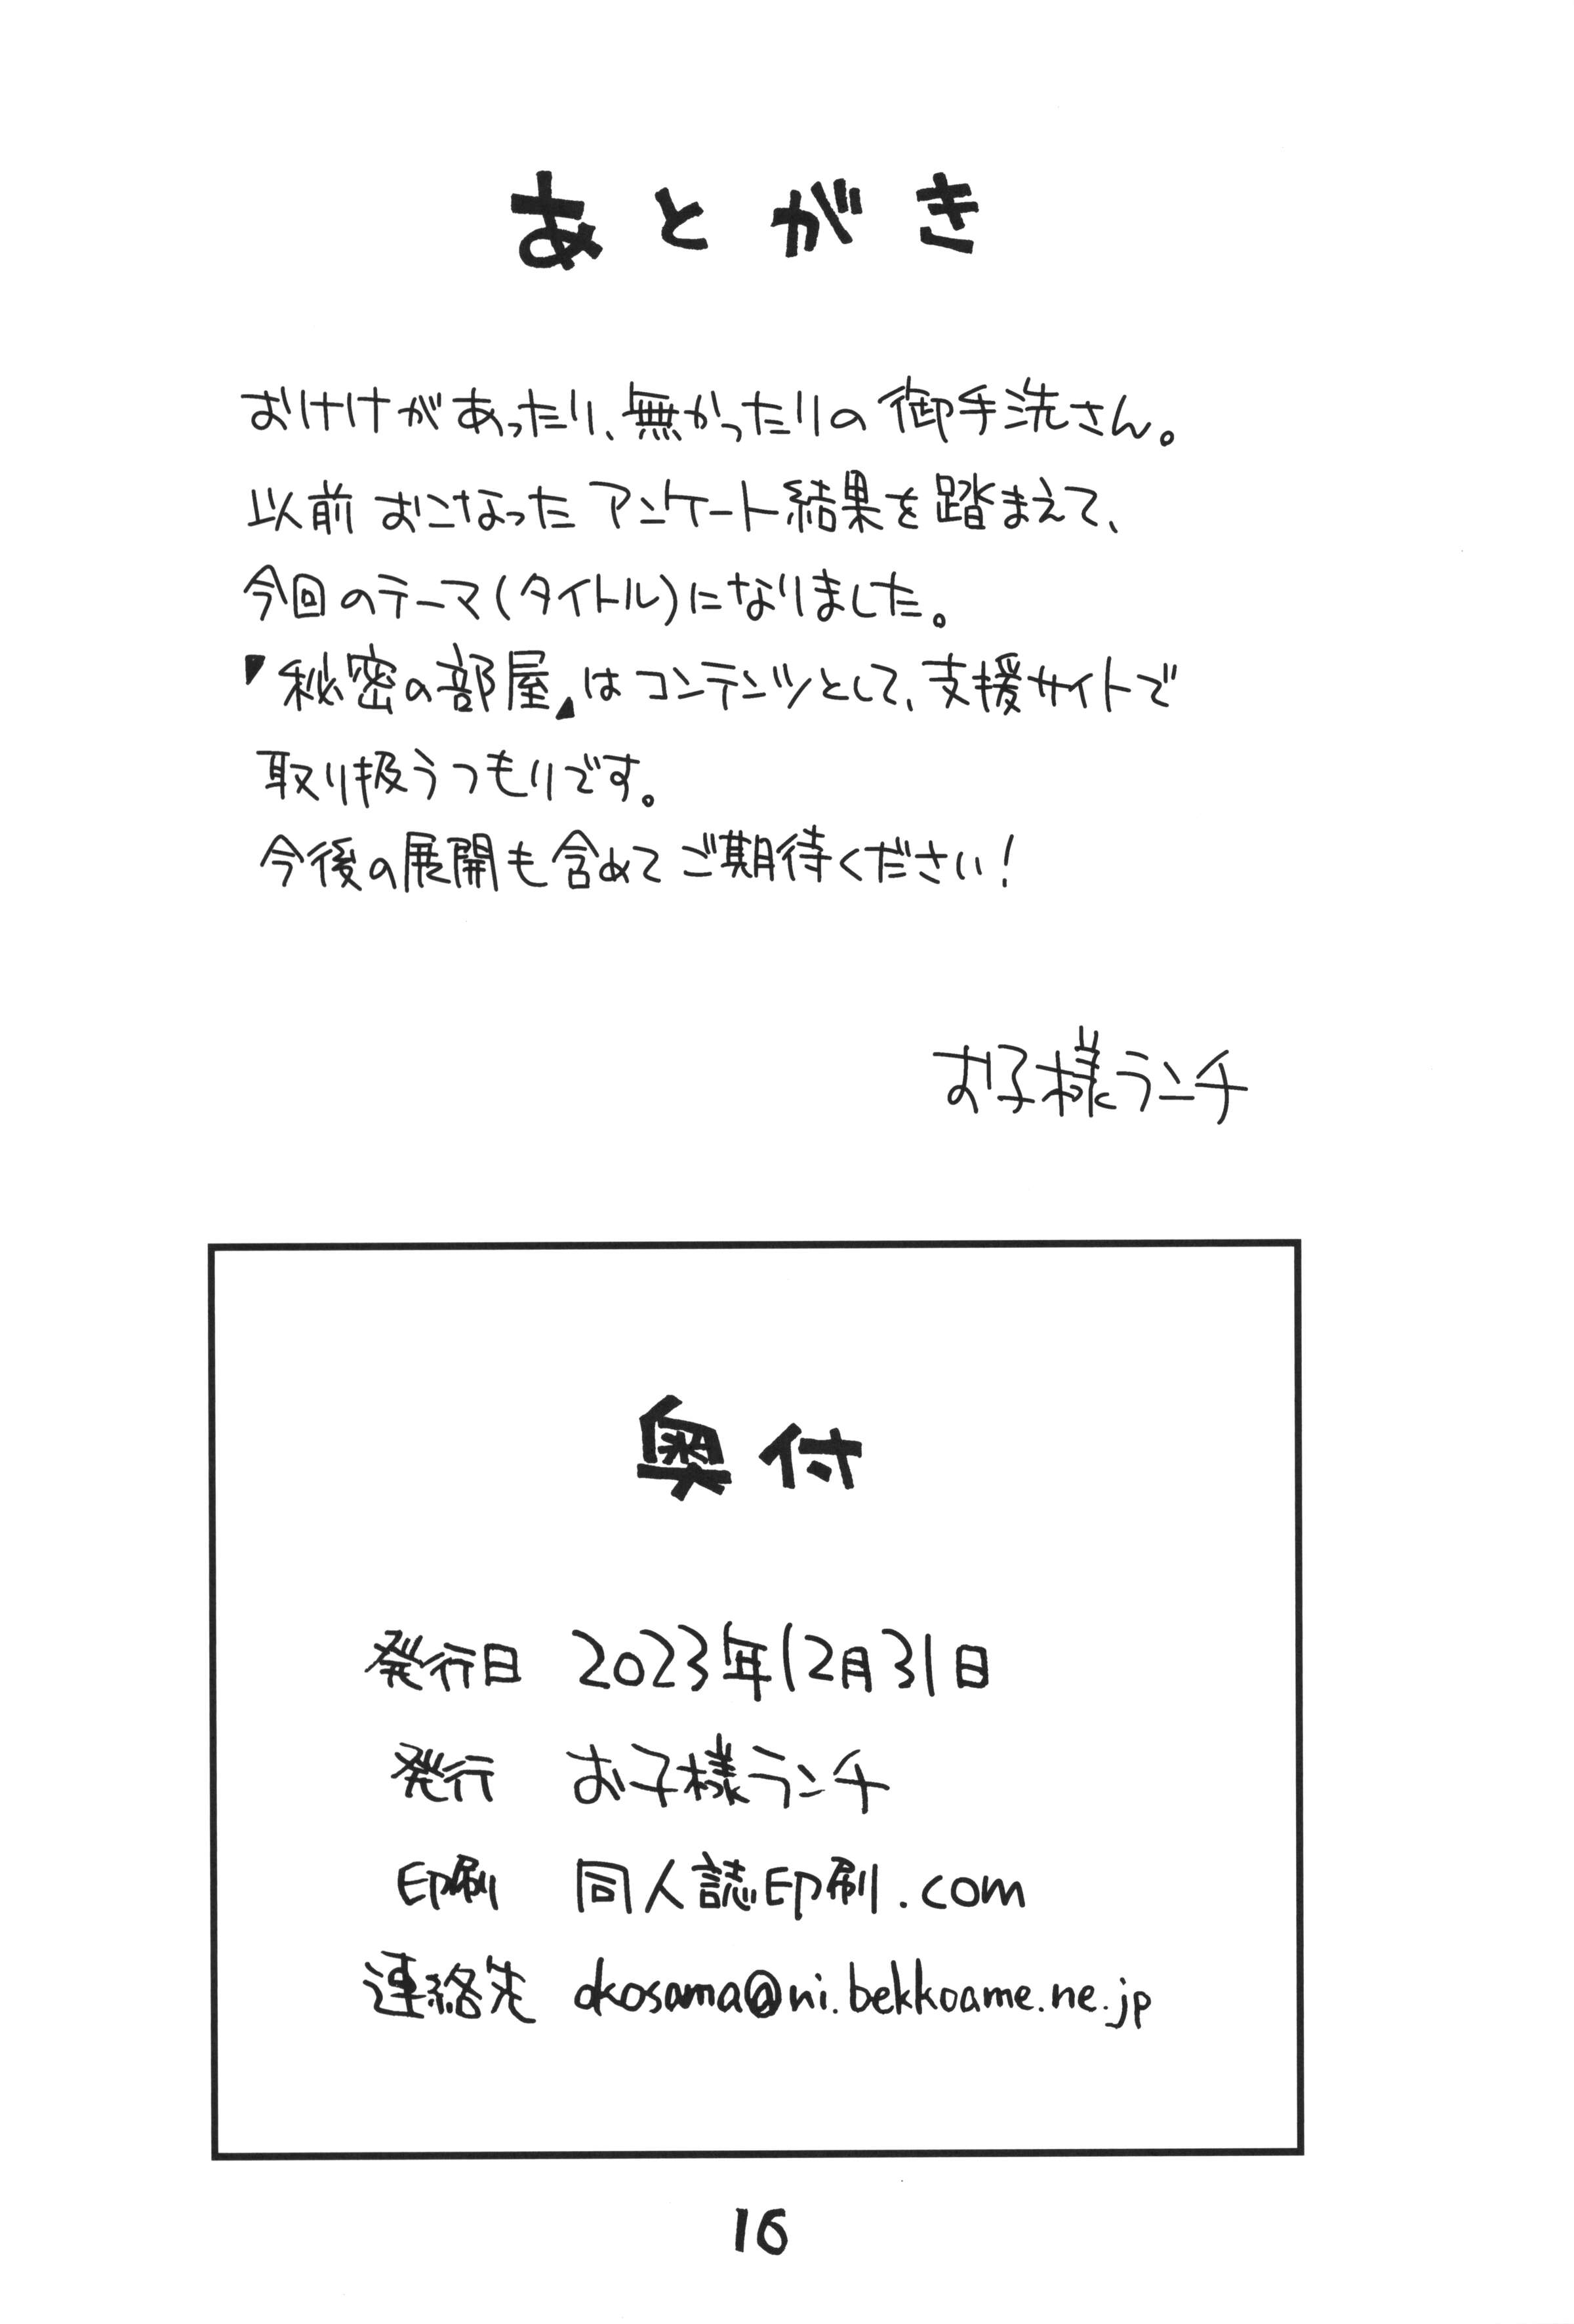 あとがき
おけけがあったり、無かったりの御手洗さん。
以前おこなったアンケート結果を踏まえて、
今回のテーマ(タイトル)になりました。
『秘密の部屋』はコンテンツとして、支援サイトで
取り扱うつもりです。
今後の展開も含めてご期待ください!
お子様ランチ
奥付
発行日 2023年12月31日
発行 お子様ランチ
印刷 同人誌印刷.com
連絡先 okosama@ni.bekkoame.ne.jp
16